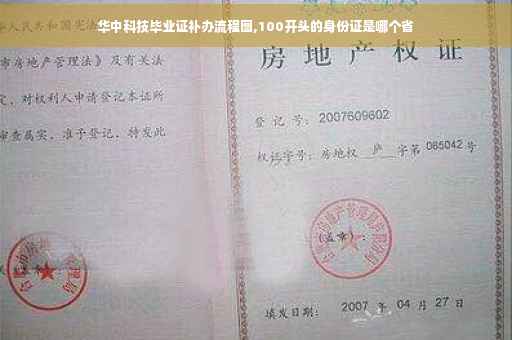 华中科技毕业证补办流程图,100开头的身份证是哪个省
华人民共和国宪法
市房地产管理法》及有关法
定，对权利人申请登记本证所
审查属实，准予登记，特发此
房 地 产 权 证
登 记 号：2007609602
权证字号：房地权 庐 字第 085042 号
（盖章）：
填发日期： 2007 年 04 月 27 日